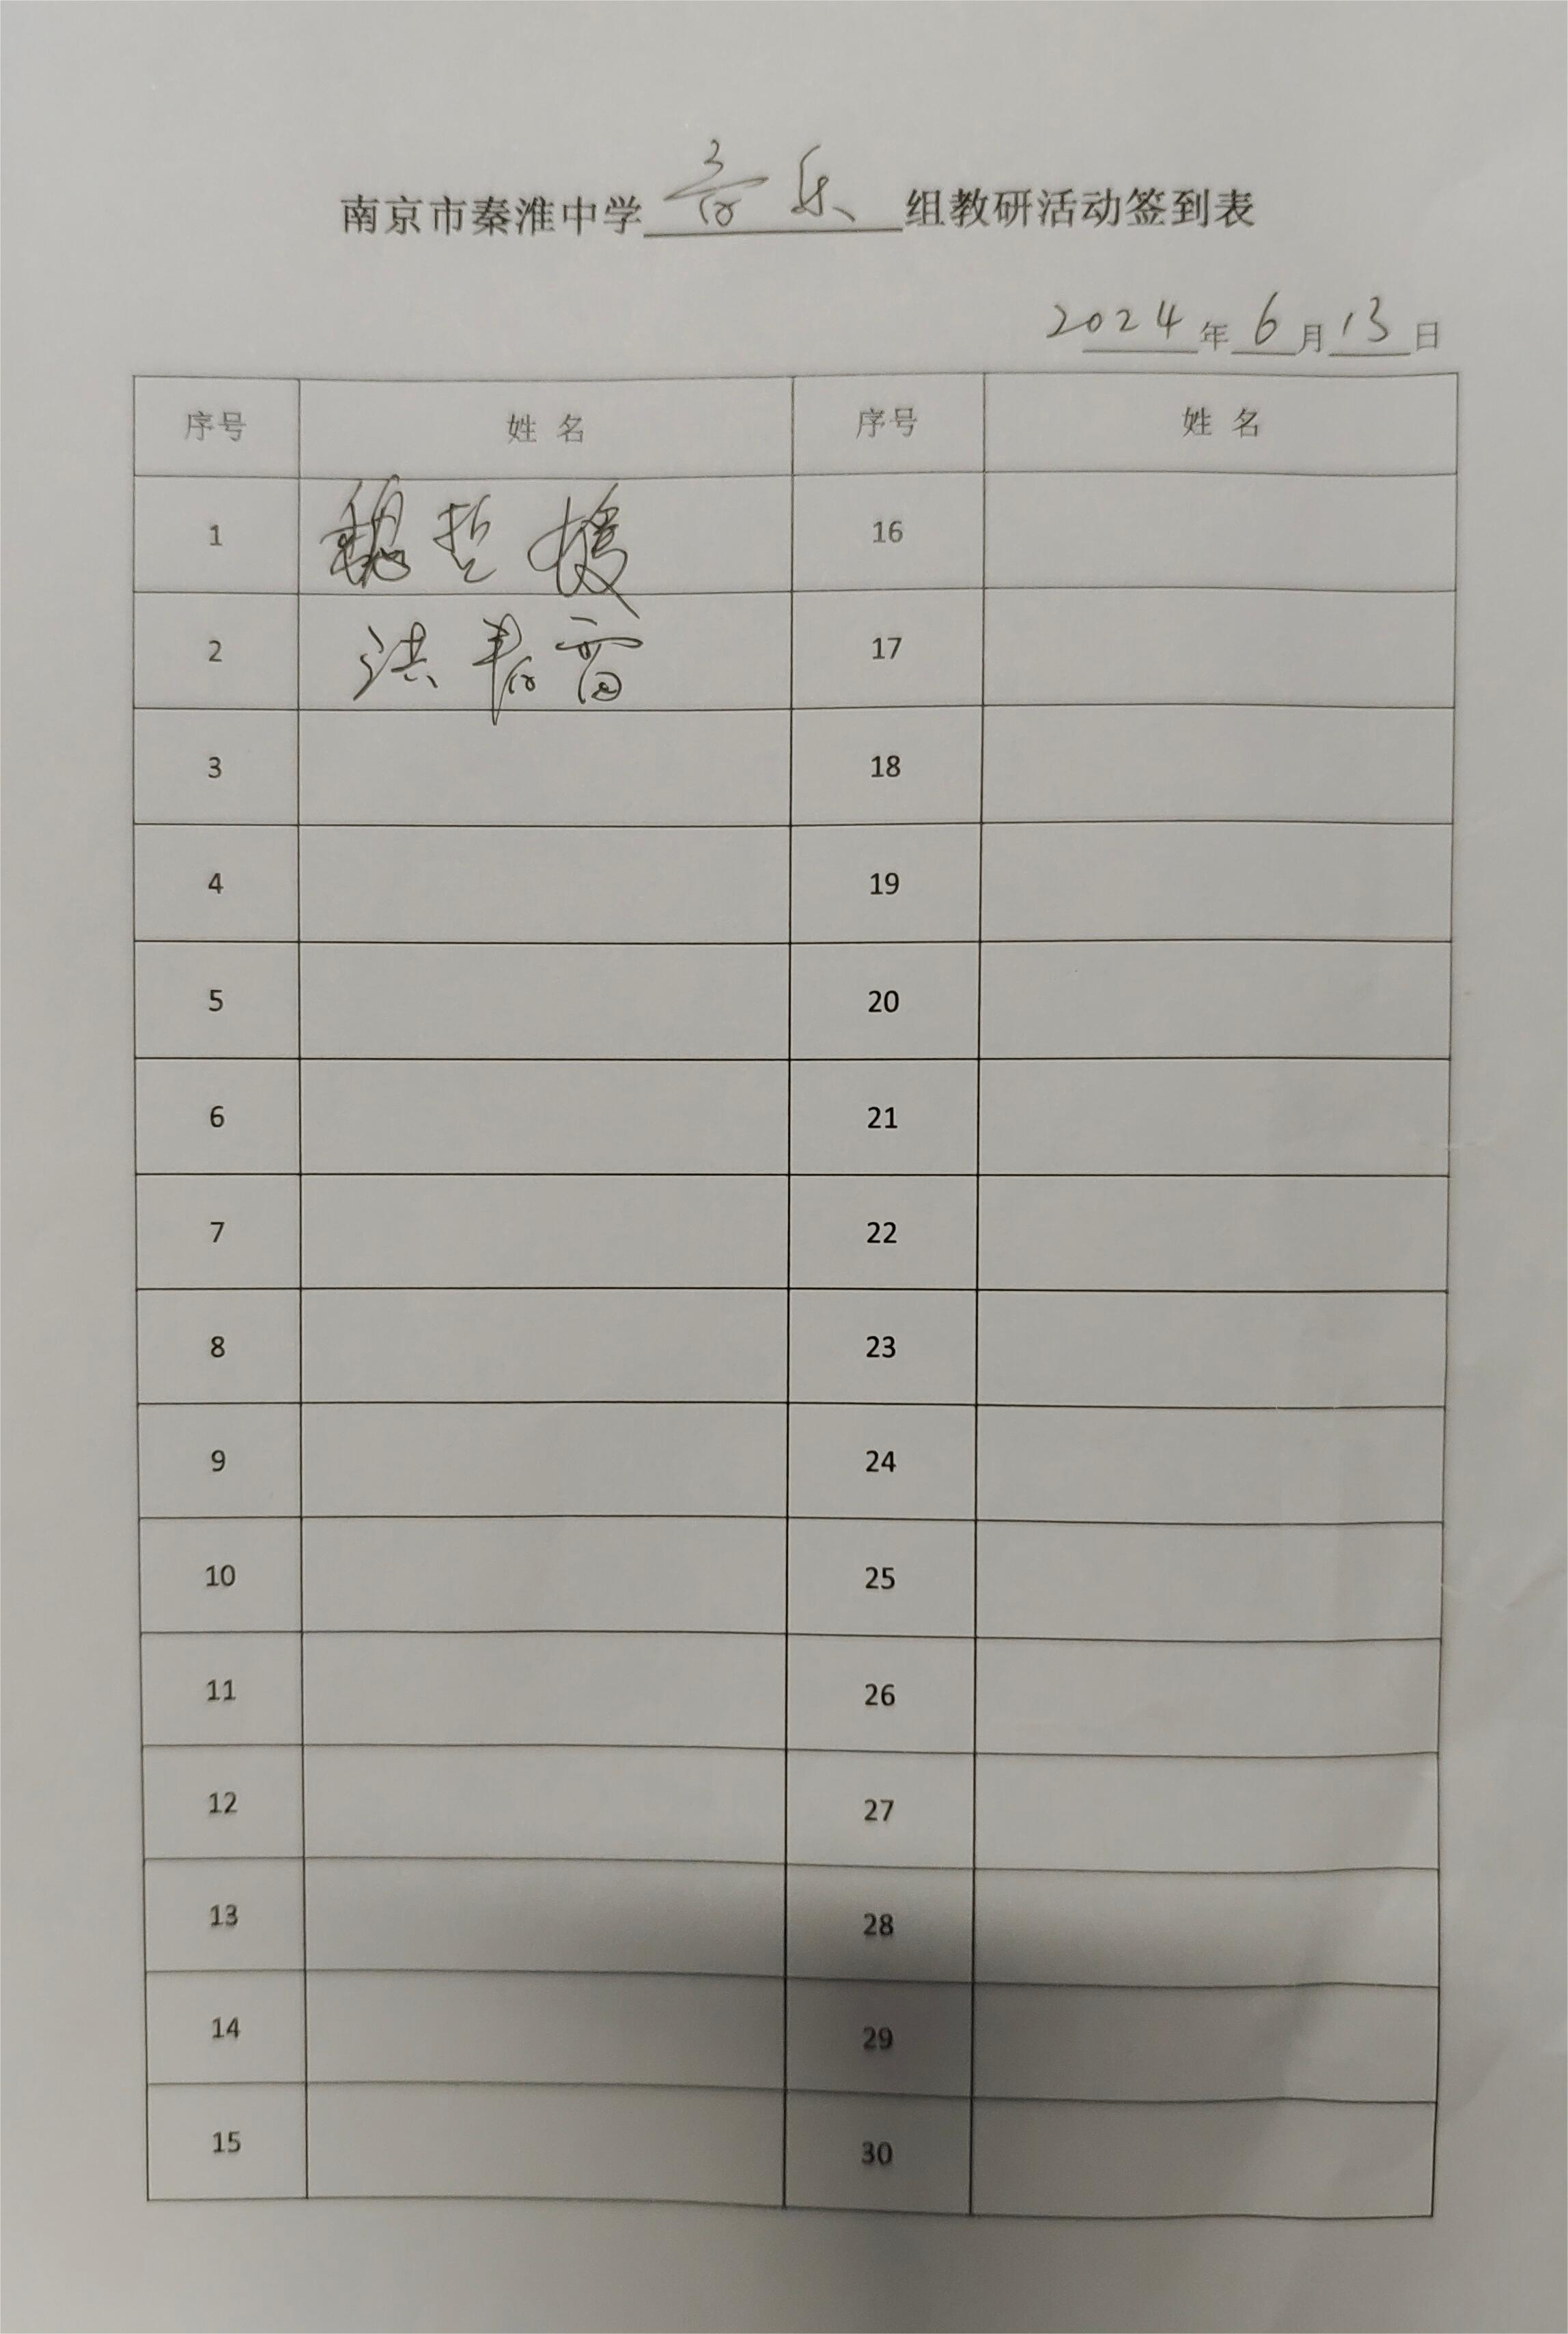 南京市秦淮中学 音乐 组教研活动签到表
2024年6月13日
序号 姓名 序号 姓名
1 魏哲援 16
2 洪春雷 17
3 18
4 19
5 20
6 21
7 22
8 23
9 24
10 25
11 26
12 27
13 28
14 29
15 30